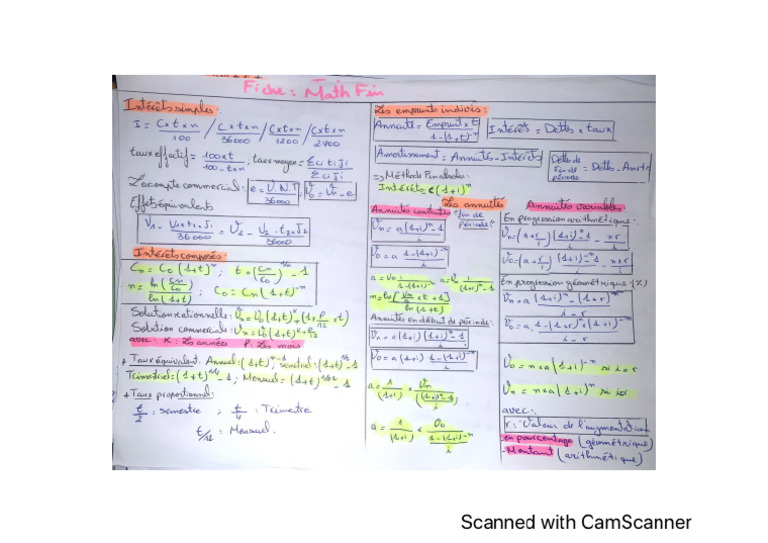 Fiche : Math Fin
Intérêts simples :
I = Cxtxn/100 / Cxtxn/36000 / Cxtxn/1200 / Cxtxn/2400
taux effectif = 100xt/100-txn ; taux moyen = Σcitiji/Σciji
L'acompte commercial : e = V.N.T/36000 ; V0 = Vn - e
Effets équivalents
V1 - V1xt1.J1/36000 = V2 - V2.t2.J2/36000
Intérêts composés :
Cn = C0(1+t)^n ; t = (Cn/C0)^1/n - 1
n = ln(Cn/C0)/ln(1+t) ; C0 = Cn(1+t)^-n
Solution rationnelle : Vn = V0(1+t)^k(1+p/12 xt)
Solution commerciale : Vn = V0(1+t)^k+p/12
avec : K : Les années P : Les mois
+ Taux équivalent
Trimetriel =
+ Taux proportionnel :
t/2 : semestre ; t/4 : Trimestre
t/12 : Mensuel.
Les emprunts indivis :
Annuité = Emprunt x t/1-(1+t)^-n Intérêt = Dette x taux
Amortissement = Annuités - Intérêts
Dette de fin de période = Dette - Amort
=> Méthode
Intérêts
Les annuités
Annuités constantes "fin de période"
Vn = a (1+i)^n-1/i
V0 = a 1-(1+i)^-n/i
Annuités en début de période :
Vn = a(1+i) (1+i)^n-1/i
V0 = a(1+i) 1-(1+i)^-n/i
a = 1/(1+i) x Vn/((1+i)^n-1/i)
a = 1/(1+i) x V0/(1-(1+i)^-n/i)
Annuités variables
En progression arithmétique :
Vn = (a+r/i) (1+i)^n-1/i - nxr/i
En progression géométrique (%)
V0 = nxa(1+i)^-n si i=r
avec :
r : Valeur de l'augmentation
en pourcentage (géométrique)
- Montant (arithmétique)
Scanned with CamScanner